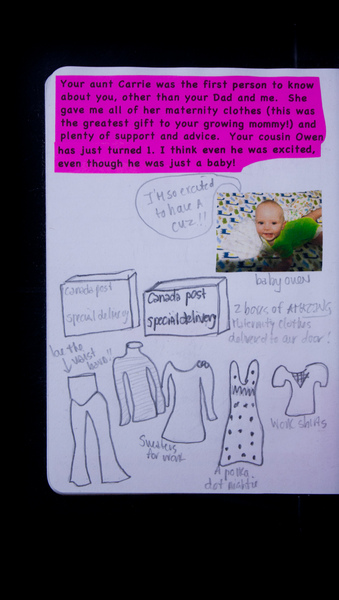 Your aunt Carrie was the first person to know
about you, other than your Dad and me. She
gave me all of her maternity clothes (this was
the greatest gift to your growing mommy!) and
plenty of support and advice. Your cousin Owen
has just turned 1. I think even he was excited,
even though he was just a baby!
I'm so excited
to have a
cuz!!
baby owen
Canada post
special delivery
Canada post
special delivery
2 boxes of AMAZING
maternity clothes
delivered to our door!
love the
waist
band!!
Sweaters
for work
A polka
dot nightie
Work shirts